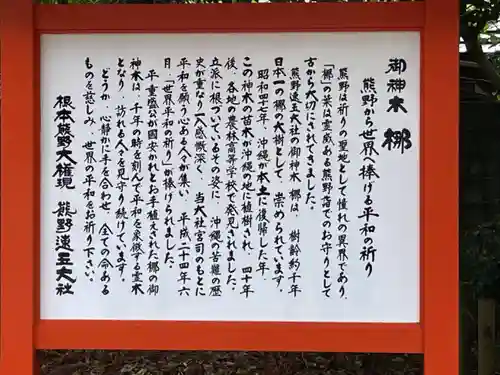 御神木 梛
熊野から世界へ捧げる平和の祈り
熊野は祈りの聖地として憧れの異界であり、
「梛」の葉は霊威ある熊野詣でのお守りとして
古から大切にされてきました。
熊野速玉大社の御神木「梛」は、樹齢約千年
日本一の梛の大樹として、崇められています。
昭和四十七年、沖縄が本土に復帰した年、
この神木の苗木が沖縄の地に植樹され、四十年
後、各地の農林高等学校で発見されました。
立派に根づいているその姿に、沖縄の苦難の歴
史が重なり一入感慨深く、当大社宮司のもとに
平和を願う心ある人々が集い、平成二十四年六
月、「世界平和の祈り」が捧げられました。
平重盛公が国安かれとお手植えされた梛の御
神木は、千年の時を刻んで平和を象徴する霊木
となり、訪れる人々を見守り続けています。
どうか、心静かに手を合わせ、全ての命ある
ものを慈しみ、世界の平和をお祈り下さい。
根本熊野大権現 熊野速玉大社